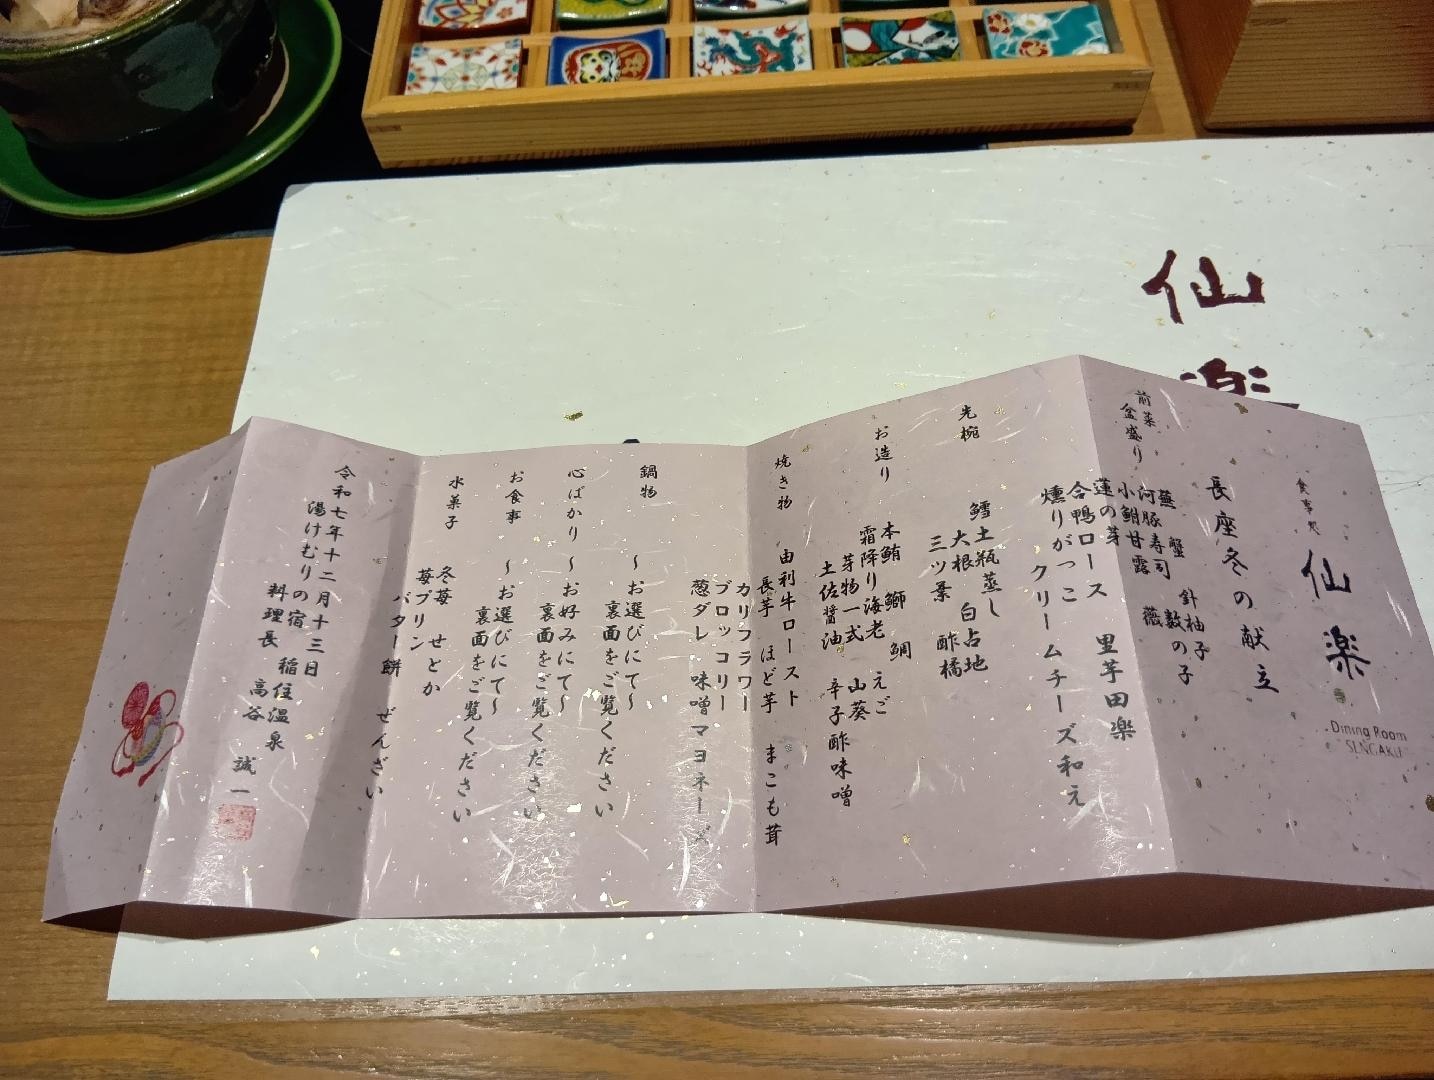 仙楽
食事処 仙楽
Dining Room
SENGAKU
長座冬の献立
前菜
盆盛り
蕪 蟹 針柚子
河豚寿司 数の子
小鮒甘露 薇
蓮の芽
合鴨ロース 里芋田楽
燻りがっこ クリームチーズ和え
先椀
鱈土瓶蒸し
大根 白占地
三ツ葉 酢橘
お造り
本鮪 鰤 鯛
霜降り海老 えご
芽物一式 山葵
土佐醤油 辛子酢味噌
焼き物
由利牛ロースト
長芋 ほど芋 まこも茸
カリフラワー
ブロッコリー
葱ダレ 味噌マヨネーズ
鍋物
〜お選びにて〜
裏面をご覧ください
心ばかり
〜お好みにて〜
裏面をご覧ください
お食事
〜お選びにて〜
裏面をご覧ください
水菓子
冬苺 せとか
苺プリン
バター餅 ぜんざい
令和七年十二月十三日
湯けむりの宿 稲住温泉
料理長 高谷 誠一